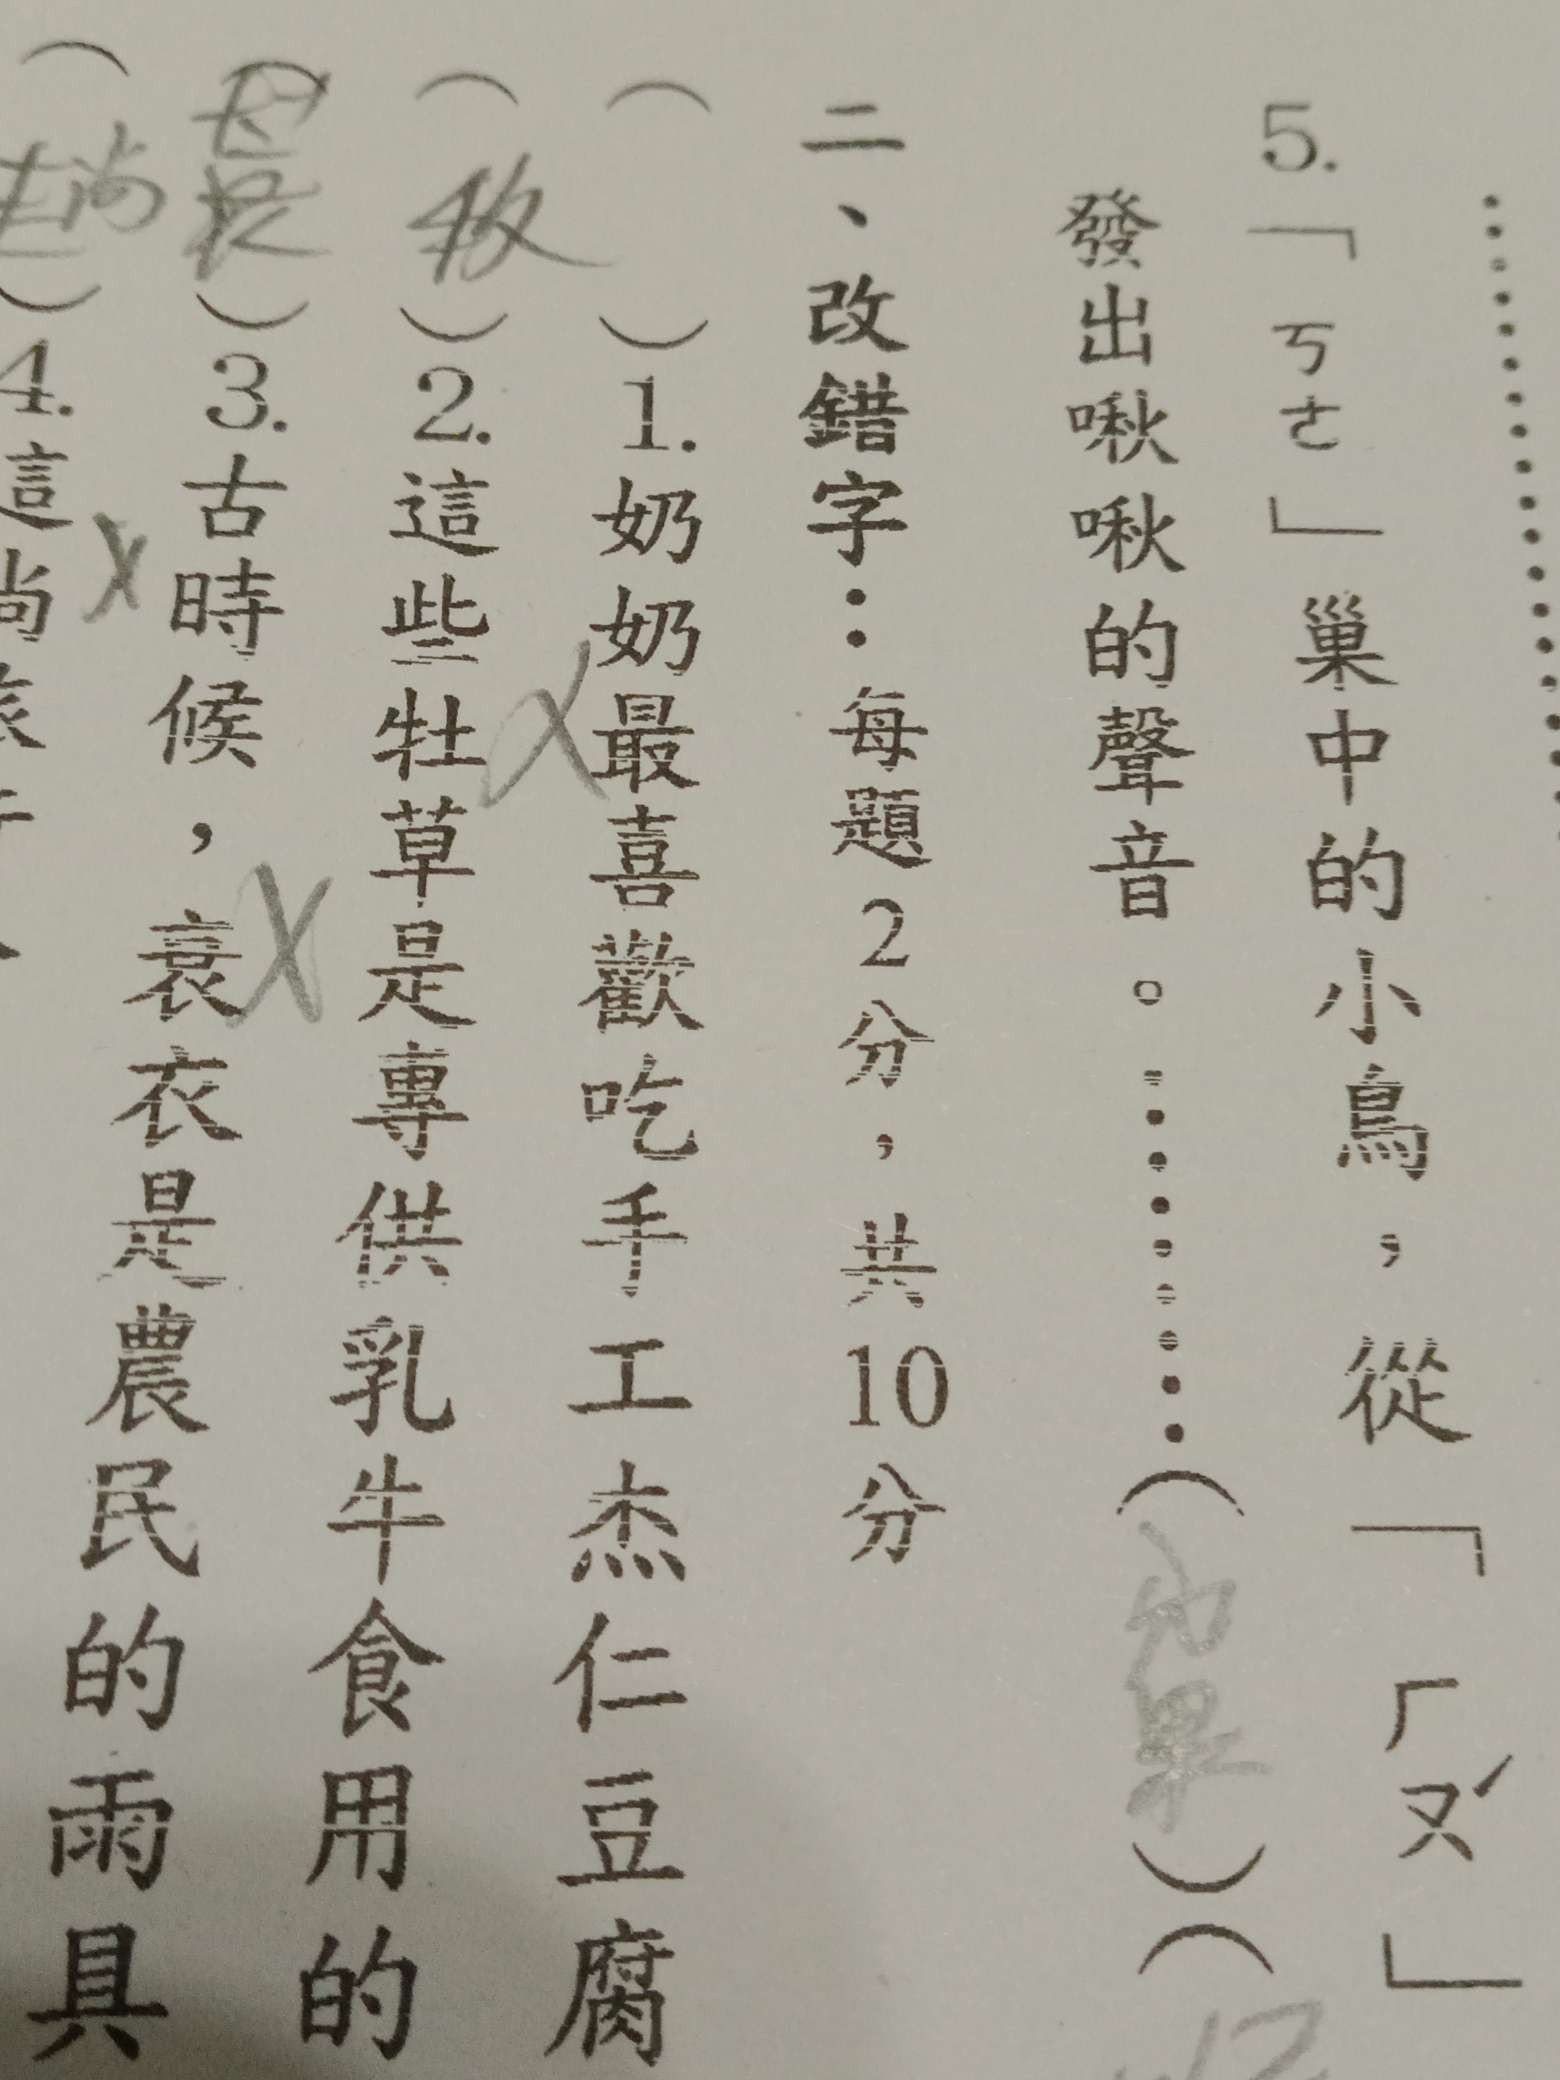 5.「ㄎㄜ」巢中的小鳥，從「ㄏㄡˊ」
發出啾啾的聲音。…………（窠）（
二、改錯字：每題2分，共10分
（ ）1.奶奶最喜歡吃手工杰仁豆腐
（牧）2.這些牡草是專供乳牛食用的
（ ）3.古時候，衰衣是農民的雨具
（趟）4.這尚旅行